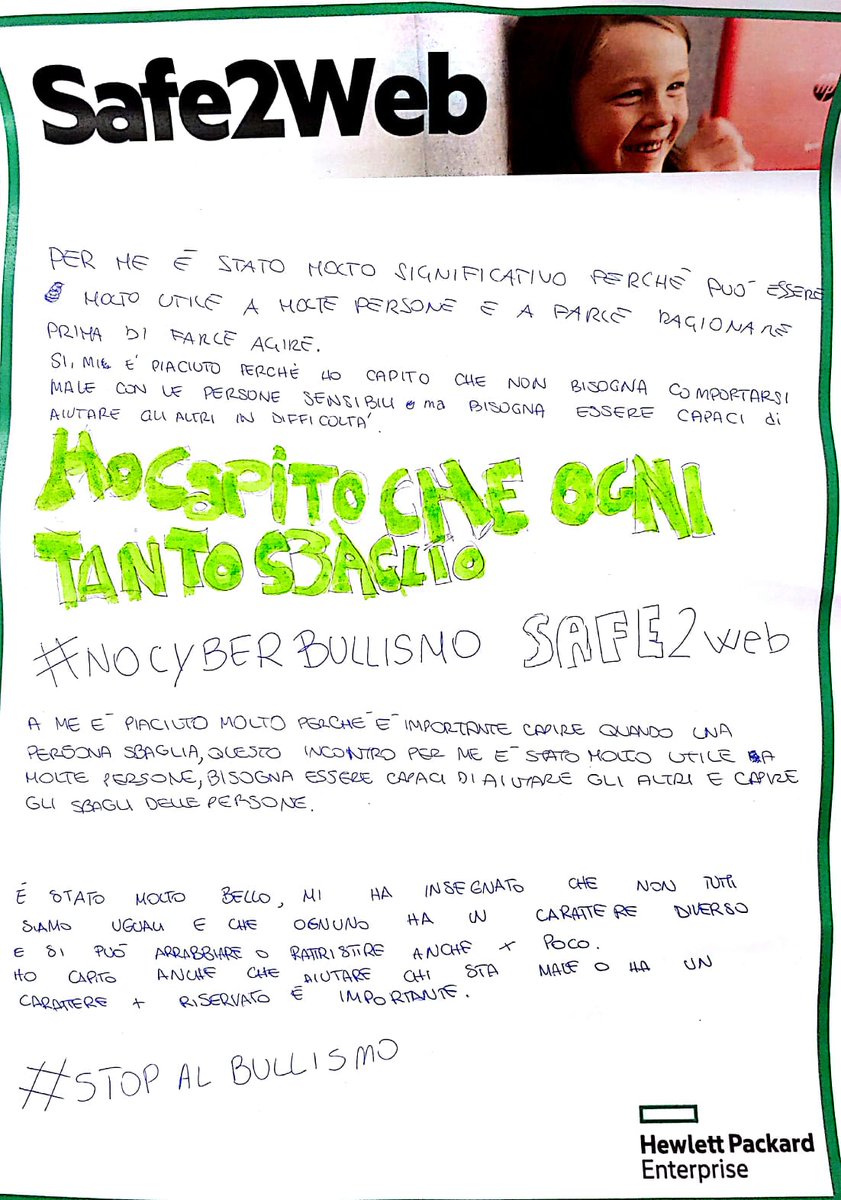 Safe2Web
PER ME È STATO MOLTO SIGNIFICATIVO PERCHÉ PUÒ ESSERE
MOLTO UTILE A MOLTE PERSONE E A FARLE RAGIONARE
PRIMA DI FARLE AGIRE.
SI, MI È PIACIUTO PERCHÈ HO CAPITO CHE NON BISOGNA COMPORTARSI
MALE CON LE PERSONE SENSIBILI ma BISOGNA ESSERE CAPACI di
AIUTARE GLI ALTRI IN DIFFICOLTA'.
HO CAPITO CHE OGNI
TANTO SBAGLIO
#NOCYBERBULLISMO SAFE2web
A ME É PIACIUTO MOLTO PERCHÉ É IMPORTANTE CAPIRE QUANDO UNA
PERSONA SBAGLIA, QUESTO INCONTRO PER ME É STATO MOLTO UTILE A
MOLTE PERSONE, BISOGNA ESSERE CAPACI DI AIUTARE GLI ALTRI E CAPIRE
GLI SBAGLI DELLE PERSONE.
É STATO MOLTO BELLO, MI HA INSEGNATO CHE NON TUTTI
SIAMO UGUALI E CHE OGNUNO HA UN CARATTERE DIVERSO
E SI PUÒ ARRABBIARE O RATTRISTIRE ANCHE X POCO.
HO CAPITO ANCHE CHE AIUTARE CHI STA MALE O HA UN
CARATTERE + RISERVATO É IMPORTANTE.
#STOP AL BULLISMO
Hewlett Packard
Enterprise